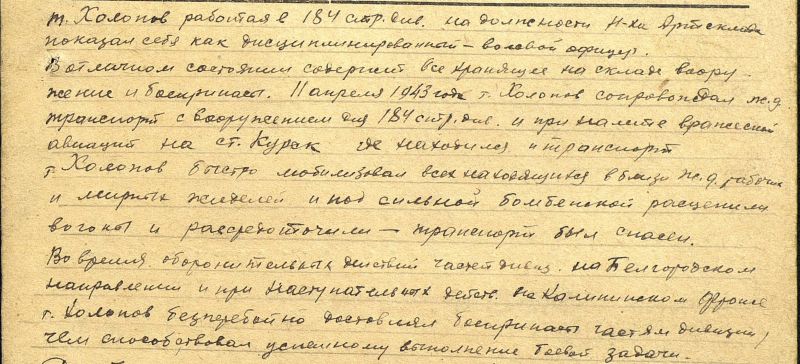 т. Холопов работая в 184 стр. див. на должности н-ка Артсклада
показал себя как дисциплинированный – волевой офицер.
В отличном состоянии содержит все хранящее на складе воору-
жение и боеприпасы. 11 апреля 1943 года т. Холопов сопровождал ж.д.
транспорт с вооружением для 184 стр. див. и при налете вражеской
авиации на ст. Курск где находился и транспорт
т. Холопов быстро мобилизовал всех находящихся вблизи ж.д. рабочих
и мирных жителей и под сильной бомбежкой расцепили
вагоны и рассредоточили – транспорт был спасен.
Во время оборонительных действий частей дивиз. на Белгородском
направлении и при наступательных действ. на Калининском фронте
т. Холопов бесперебойно доставлял боеприпасы частям дивизии,
чем способствовал успешному выполнение боевой задачи.